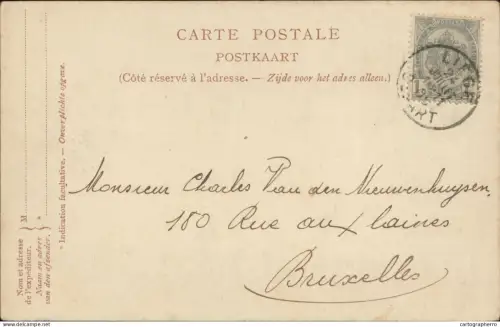 CARTE POSTALE
POSTKAART
(Côté réservé à l'adresse. — Zijde voor het adres alleen.)
LIÈGE
DÉPART
Monsieur Charles Van den Nieuwenhuysen,
180 Rue aux laines
Bruxelles
* Indication facultative. — Onverplichte opgave.
M
Nom et adresse
de l'expéditeur.
Naam en adres
van den afzender.
cartographer.ro